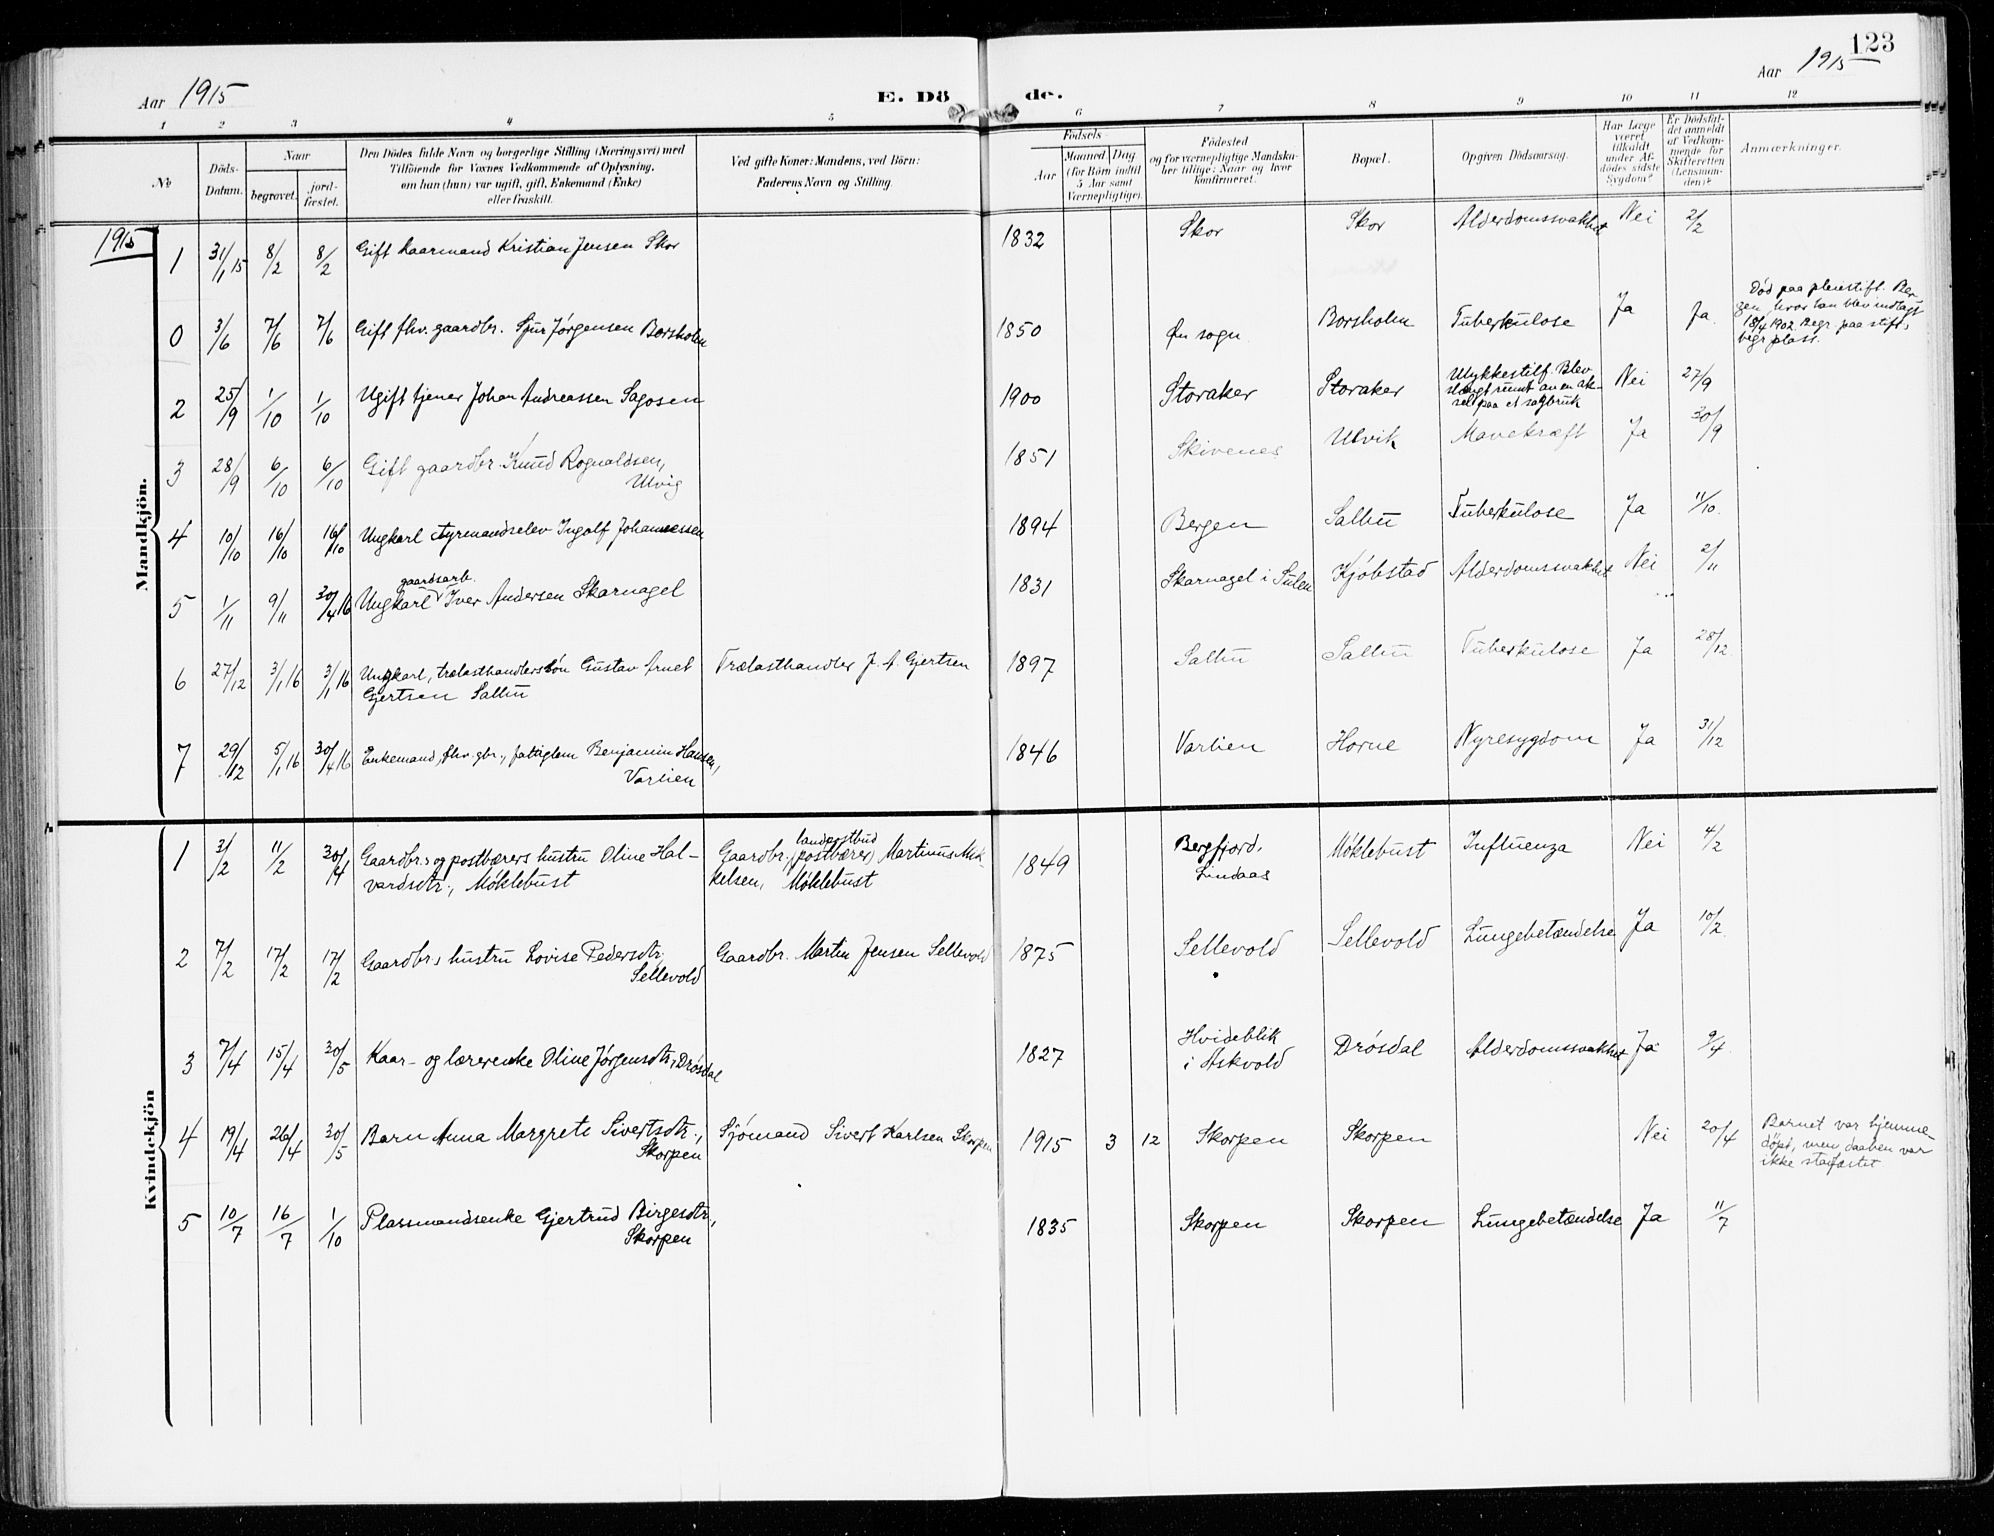 123
Aar 1915
E. Dö
de.
Aar 1915
1 2 3 4 5 6 7 8 9 10 11 12
No
Döds-Datum.
Naar
begravet.
jord-fæstet.
Den Dödes fulde Navn og borgerlige Stilling (Næringsvei) med
Tilföiende för Voxnes Vedkommende af Oplysning,
om han (hun) var ugift, gift, Enkemand (Enke)
eller fraskilt.
Ved gifte Koner: Mandens, ved Börn:
Faderens Navn og Stilling.
Födsels-
Aar
Maaned Dag
(for Börn indtil
5 Aar samt
Værnepligtige).
Födested
og for værnepligtige Mandska-
ber tillige: Naar og hvor
konfirmeret.
Bopæl.
Opgiven Dödsaarsag.
Har Læge
været
tilkaldt
under Af-
dödes sidste
Sygdom?
Er Dödsfal-
det anmeldt
af Vedkom-
mende for
Skifteretten
(Lensman-
den)?
Anmærkninger.
1915
Mandkjön.
1 31/1 15 8/2 8/2 Gift kaarmand Kristian Jensen Skor 1832 Skor Skor Alderdomssvakhet Nei 2/2
0 3/6 7/6 7/6 Gift fhv. gaardbr. Sjur Jørgensen Borsholm 1850 Øn sogn Borsholm Tuberkulose Ja Ja
Død paa pleiestift. Ber-
gen, hvor han blev indlagt
18/4 1902. Begr. paa stift.
begr.plass.
2 25/9 1/10 1/10 Ugift tjener Johan Andreassen Sagosen 1900 Storaker Storaker Ulykkestilf. Blev
slengt rundt av en ak-
sel paa et sagbruk Nei 27/9
3 28/9 6/10 6/10 Gift gaardbr. Knud Rognaldsen,
Ulvig 1851 Skivenes Ulvik Mavekræft Ja 30/9
4 10/10 16/10 16/10 Ungkarl styrmandselev Ingolf Johannessen 1894 Bergen Salbu Tuberkulose Ja 11/10
gaardsarb.
5 1/11 9/11 30/4 16 Ungkarl Iver Andersen Skarnagel 1831 Skarnagel i Sulen Kjöbstad Alderdomssvakhet Nei 2/11
6 27/12 3/1 16 3/1 16 Ungkarl, trælasthandlersøn Gustav Arnet
Gjertsen Salbu Trælasthandler J. A. Gjertsen 1897 Salbu Salbu Tuberkulose Ja 28/12
7 29/12 5/1 16 30/4 16 Enkemand, fhv. gbr., fattiglem Benjamin Hansen,
Varlien 1846 Varlien Horne Nyresygdom Ja 31/12
Kvindekjön
1 3/2 11/2 30/4 Gaardbr.s og postbærers hustru Oline Hal-
vardsdtr., Møklebust
landpostbud
Gaardbr. (postbærer) Martinus Mik-
kelsen, Møklebust 1849 Bergfjord,
Lindaas Møklebust Influenza Nei 4/2
2 7/2 17/2 17/2 Gaardbr.s hustru Lovise Pedersdtr.
Sellevold Gaardbr. Martin Jensen Sellevold 1875 Sellevold Sellevold Lungebetændelse Ja 10/2
3 7/4 15/4 30/5 Kaar- og lærerenke Oline Jørgensdtr., Drøsdal 1827 Hvideblik
i Askvold Drøsdal Alderdomssvakhet Ja 9/4
4 19/4 26/4 30/5 Barn Anna Margrete Sivertsdtr.,
Skorpen Sjømand Sivert Karlsen Skorpen 1915 3 12 Skorpen Skorpen Nei 20/4
Barnet var hjemme-
døpt, men daaben var
ikke stadfæstet
5 10/7 16/7 1/10 Plassmandsenke Gjertrud Birgesdtr.,
Skorpen 1835 Skorpen Skorpen Lungebetændelse Ja 11/7